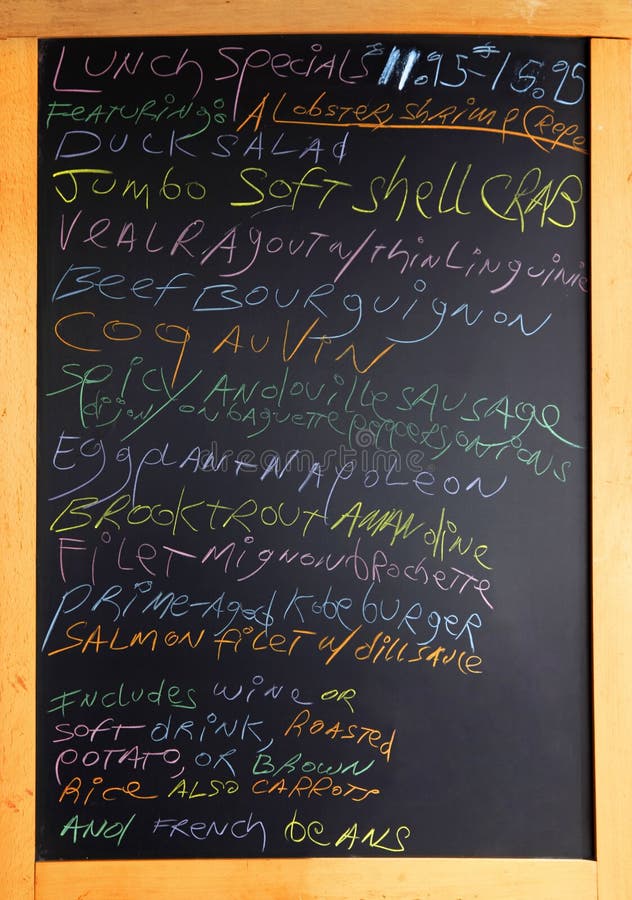 Lunch Specials $11.95-$15.95
Featuring: A Lobster, shrimp Crepe
Duck Salad
Jumbo Soft shell CRAB
Veal Ragout w/ thin Linguinie
Beef Bourguignon
Coq au Vin
Spicy Andouille Sausage
dijon on baguette peppers, onions
Eggplant Napoleon
Brook Trout Amandine
Filet Mignon Brochette
Prime-Aged Kobe burger
Salmon filet w/ dill sauce
Includes wine or
soft drink, roasted
potato, or Brown
Rice also carrots
And French beans
dreamstime.com